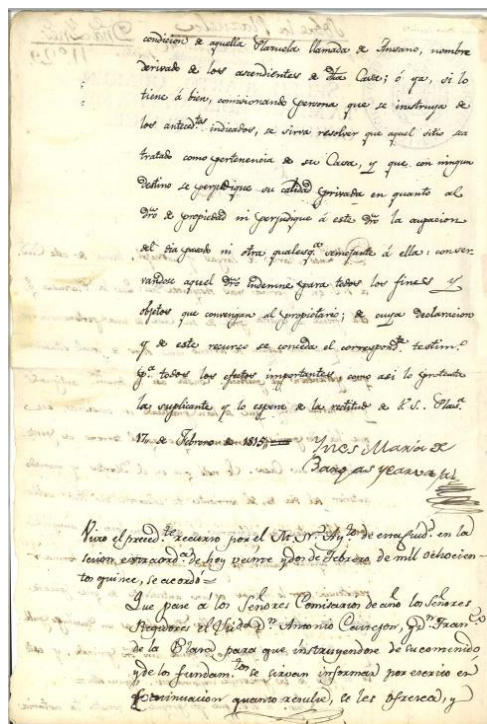 condicion de aquella Plazuela llamada de Ansano, nombre
derivado de los ascendientes de dha Casa; ó ya, si lo
tiene á bien, comisionando persona que se instruya de
los anteced.tes indicados, se sirva resolver que aquel sitio sea
tratado como pertenencia de su Casa, y que con ningun
destino se perjudique su calidad privada en quanto al
dro de propiedad ni perjudique á este dro la ocupacion
del dia ni otra qualesq.a semejante á ella: conser-
vandose aquel dro indemne para todos los fines y
objetos que convengan al propietario; de cuya declaracion
y de este recurso se conceda el correspond.te testim.o
p.a todos los efectos importantes, como asi lo protesta
la suplicante y lo espera de la rectitud de V.S. Plas.a
17, de Febrero de 1815
Ynes Maria de
Bargas y
Visto el preced.te recurso por el M. N. Ay.to de esta ciud.d en la
sesion extraord.a de hoy veinte y dos de Febrero de mil ochocien-
tos quince, se acordó =
Que pase á los Señores Comisarios de los Señores
Regidores el D.n Antonio Carrejon, y D.n Fran.co
de la para que instruyendose de su contenido
y de los fundam.tos se sirvan informar por escrito en
continuacion quanto resulte, se les ofrezca, y